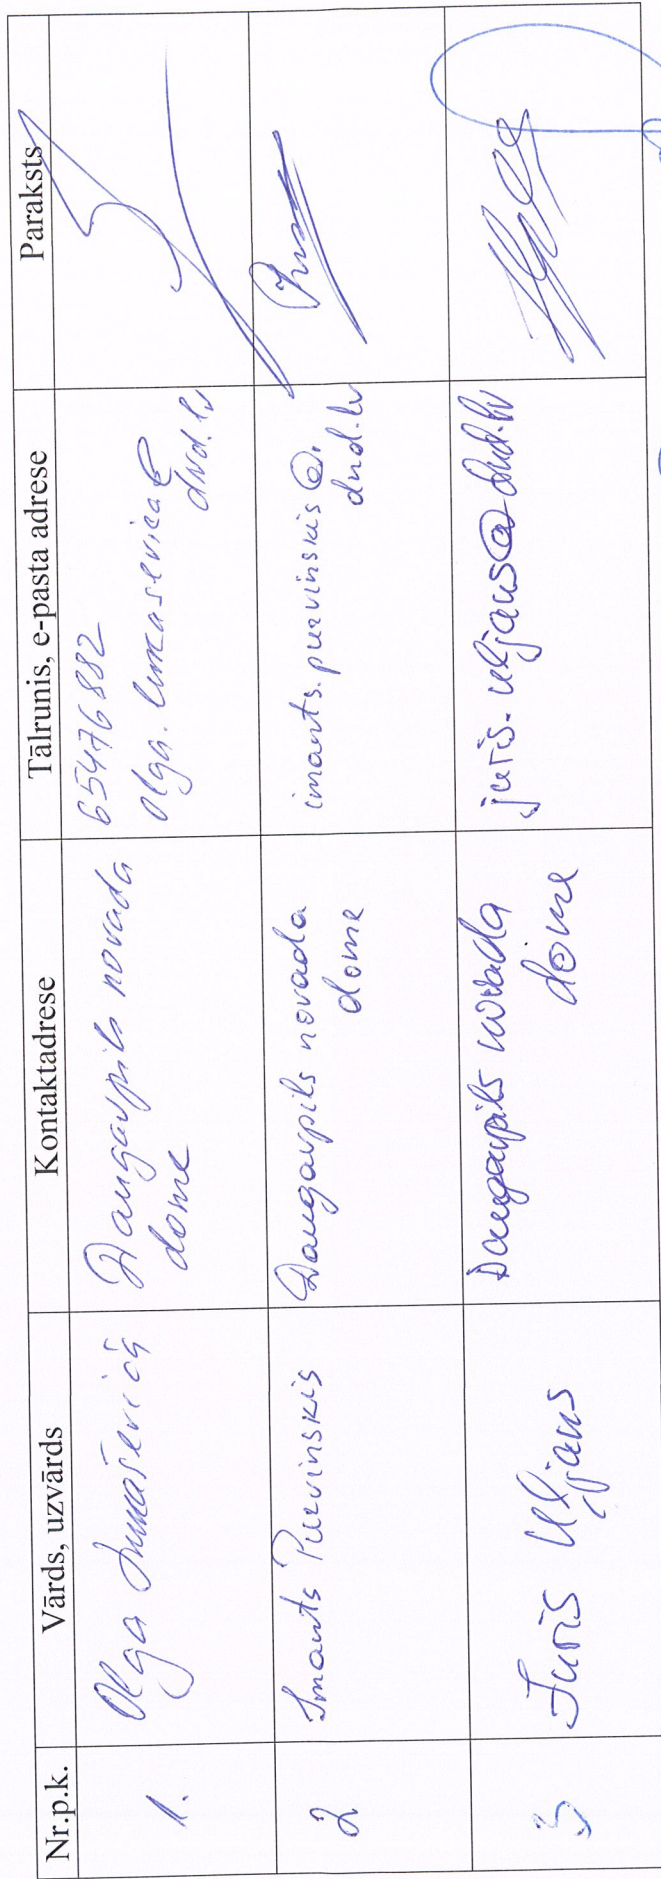 Nr.p.k. Vārds, uzvārds Kontaktadrese Tālrunis, e-pasta adrese Paraksts
1. Olga Daugavpils novada 65476882
dome olga. @
dnd.lv
2 Imants Purvinskis Daugavpils novada imants.purvinskis@
dome dnd.lv
3 Juris Uljans Daugavpils novada juris.uljans@dnd.lv
dome